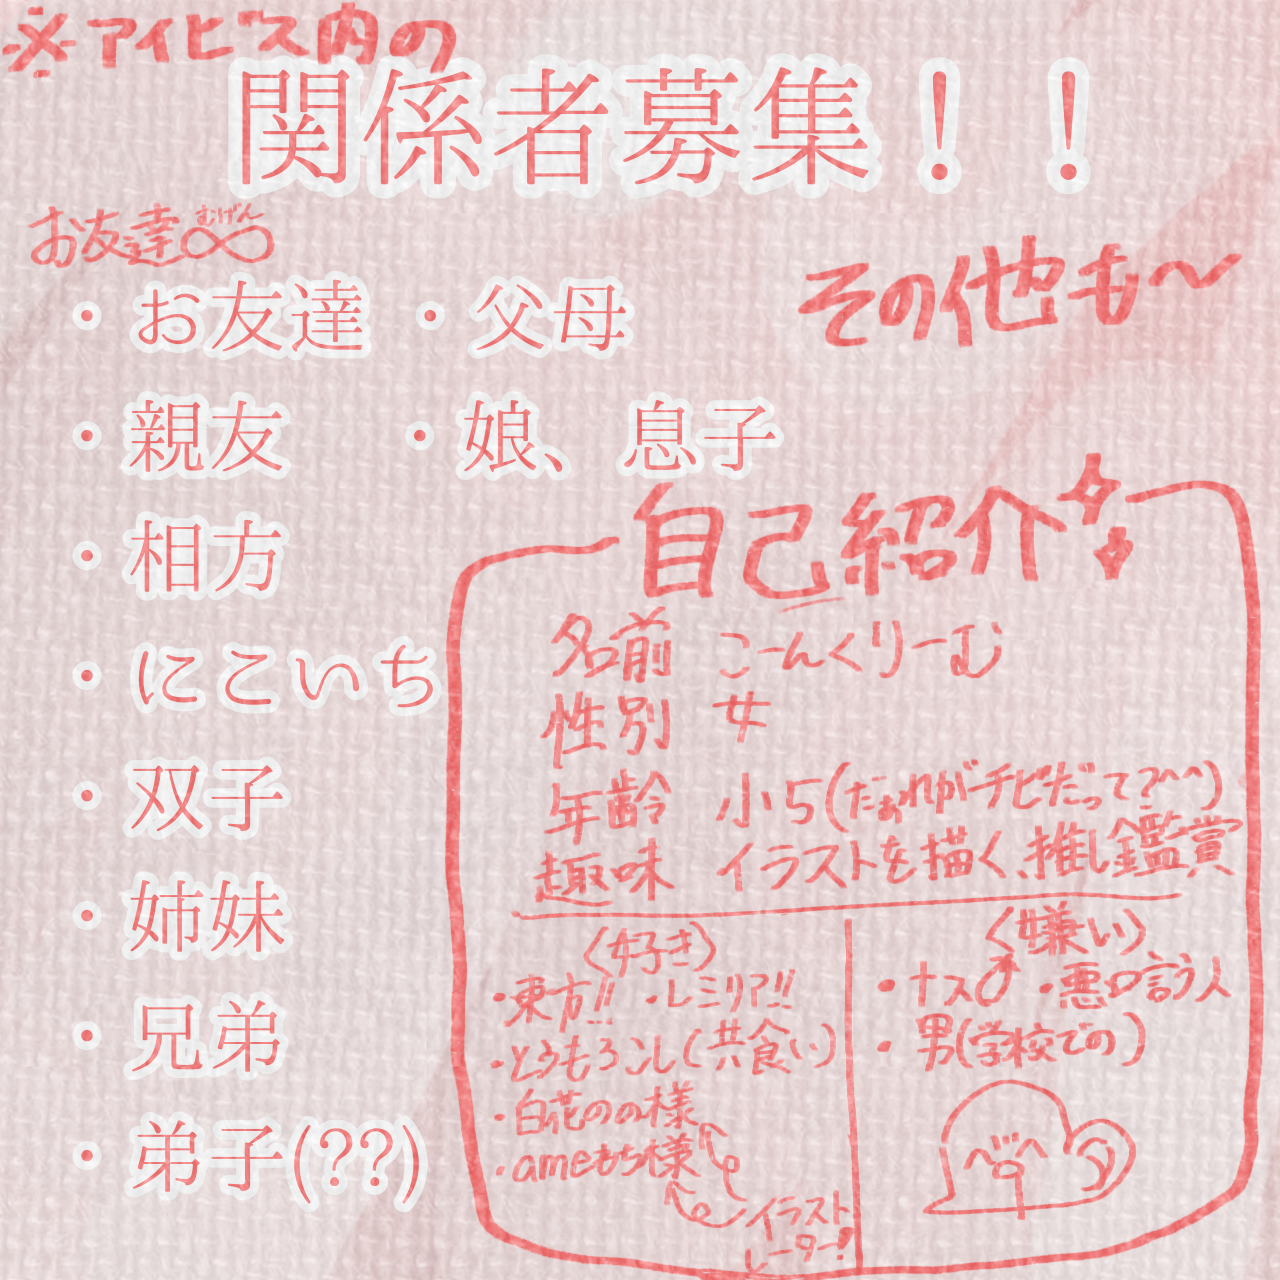 ※アイビス内の
関係者募集！！
お友達∞
むげん
その他も〜
・お友達 ・父母
・親友 ・娘、息子
・相方
・にこいち
・双子
・姉妹
・兄弟
・弟子(??)
自己紹介
名前 こーんくりーむ
性別 女
年齢 小5(だぁれがチビだって?^^)
趣味 イラストを描く、推し鑑賞
〈好き〉
・東方!! ・レミリア!!
・とうもろこし(共食い)
・白花のの様
・ameもち様
イラスト
レーター!
〈嫌い〉
・ナス ・悪口言う人
・男(学校での)